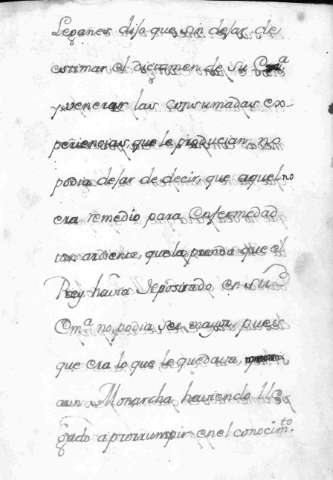 Leganes dijo que sin dejar de
estimar el dictamen de su Em.ª
y venerar las consumadas ex-
periencias, que le producian, no
podia dejar de decir, que aquel no
era remedio para Enfermedad
tan ardiente, que la prenda que el
Rey havia depositado en su
Em.ª no podia ser mayor, pues
que era lo que le quedava,
a un Monarcha haviendo lle
gado a prorrumpir en el conocim.to